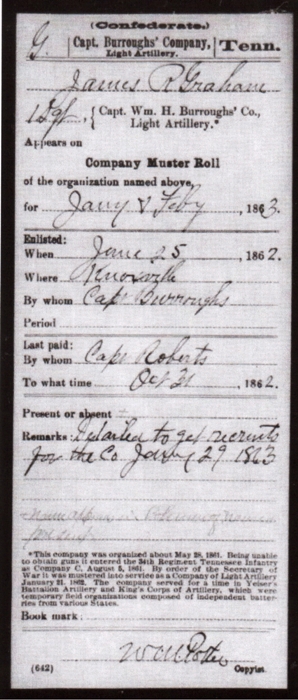 (Confederate.)
G. Capt. Burroughs' Company, Light Artillery. Tenn.
James R Graham
Capt. Wm. H. Burroughs' Co., Light Artillery.*
Appears on
Company Muster Roll
of the organization named above,
for Jany & Feby, 1863.
Enlisted:
When June 25, 1862.
Where Knoxville
By whom Capt Burroughs
Period
Last paid:
By whom Capt Roberts
To what time Oct 31, 1862.
Present or absent
Remarks: Detailed to get recruits
for the Co Jany 29 1863
*This company was organized about May 28, 1861. Being unable
to obtain guns it entered the 34th Regiment Tennessee Infantry
as Company C, August 5, 1861. By order of the Secretary of
War it was mustered into service as a Company of Light Artillery
January 21, 1862. The company served for a time in Yeiser's
Battalion Artillery and King's Corps of Artillery, which were
temporary field organizations composed of independent batter-
ies from various States.
Book mark:
(642) Copyist.